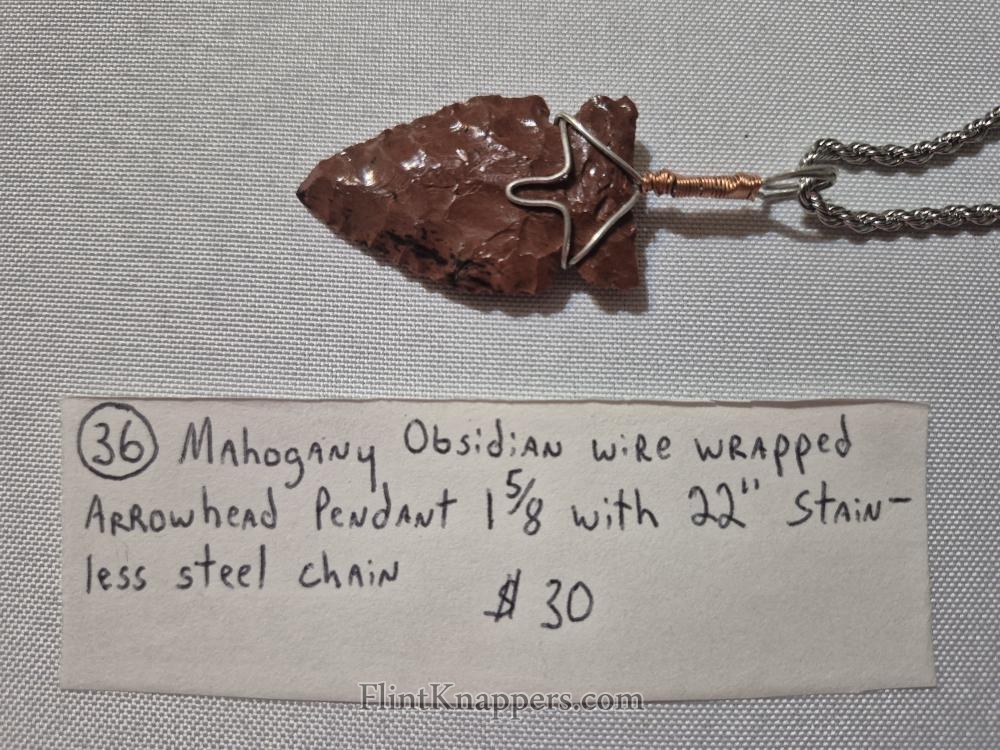 36 Mahogany Obsidian wire wrapped
Arrowhead Pendant 1 5/8 with 22" Stain-
less steel chain
$ 30
FlintKnappers.com